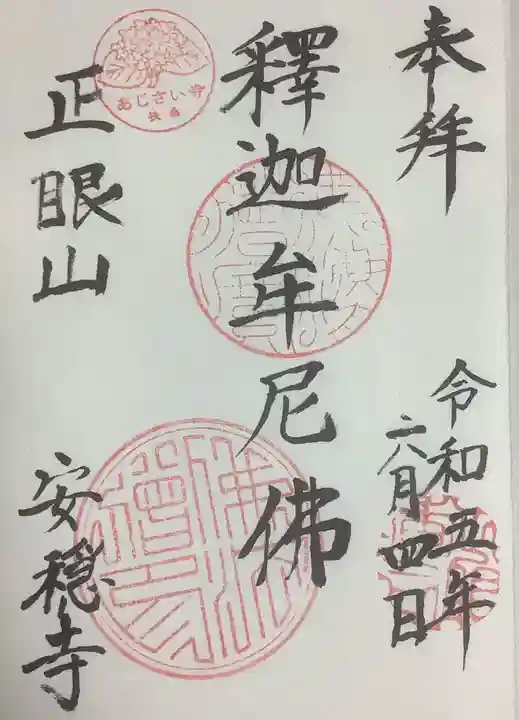 奉拜
令和五年
六月四日
釋迦牟尼佛
正眼山
安穏寺
あじさい寺